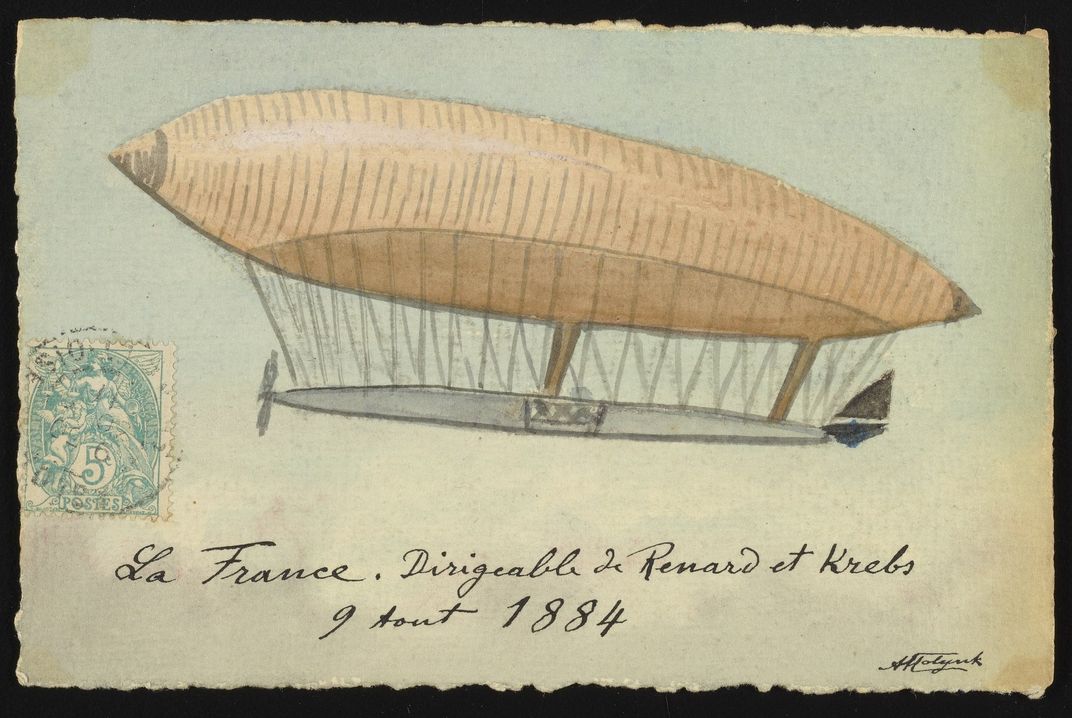 5
POSTES
La France. Dirigeable de Renard et Krebs
9 Aout 1884